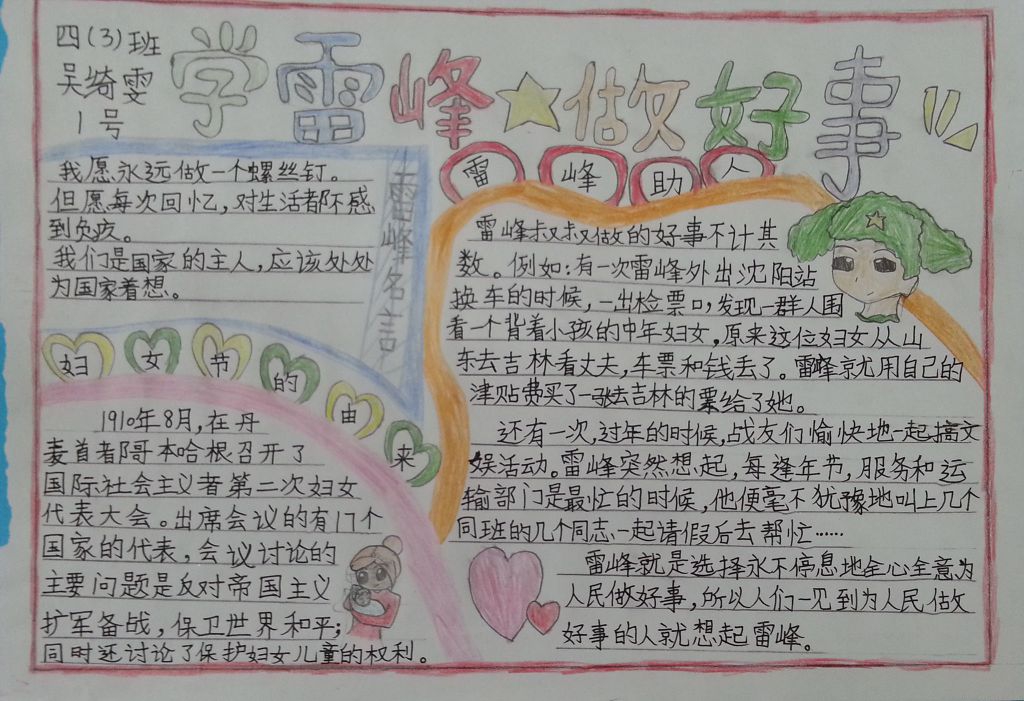 四(3)班
吴绮雯
1号
学雷峰☆做好事
我愿永远做一个螺丝钉。
但愿每次回忆,对生活都不感
到负疚。
我们是国家的主人,应该处处
为国家着想。
雷峰名言
妇女节的由来
1910年8月,在丹
麦首者都哥本哈根召开了
国际社会主义者第二次妇女
代表大会。出席会议的有17个
国家的代表,会议讨论的
主要问题是反对帝国主义
扩军备战,保卫世界和平;
同时还讨论了保护妇女儿童的权利。
雷峰助人
雷峰叔叔做的好事不计其
数。例如:有一次雷峰外出沈阳站
换车的时候,一出检票口,发现一群人围
看一个背着小孩的中年妇女,原来这位妇女从山
东去吉林看丈夫,车票和钱丢了。雷峰就用自己的
津贴费买了一张去吉林的票给了她。
还有一次,过年的时候,战友们愉快地一起搞文
娱活动。雷峰突然想起,每逢年节,服务和运
输部门是最忙的时候,他便毫不犹豫地叫上几个
同班的几个同志一起请假后去帮忙……
雷峰就是选择永不停息地全心全意为
人民做好事,所以人们一见到为人民做
好事的人就想起雷峰。